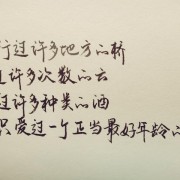 行过许多地方的桥
过许多次数的云
过许多种类的酒
只爱过一个正当最好年龄的